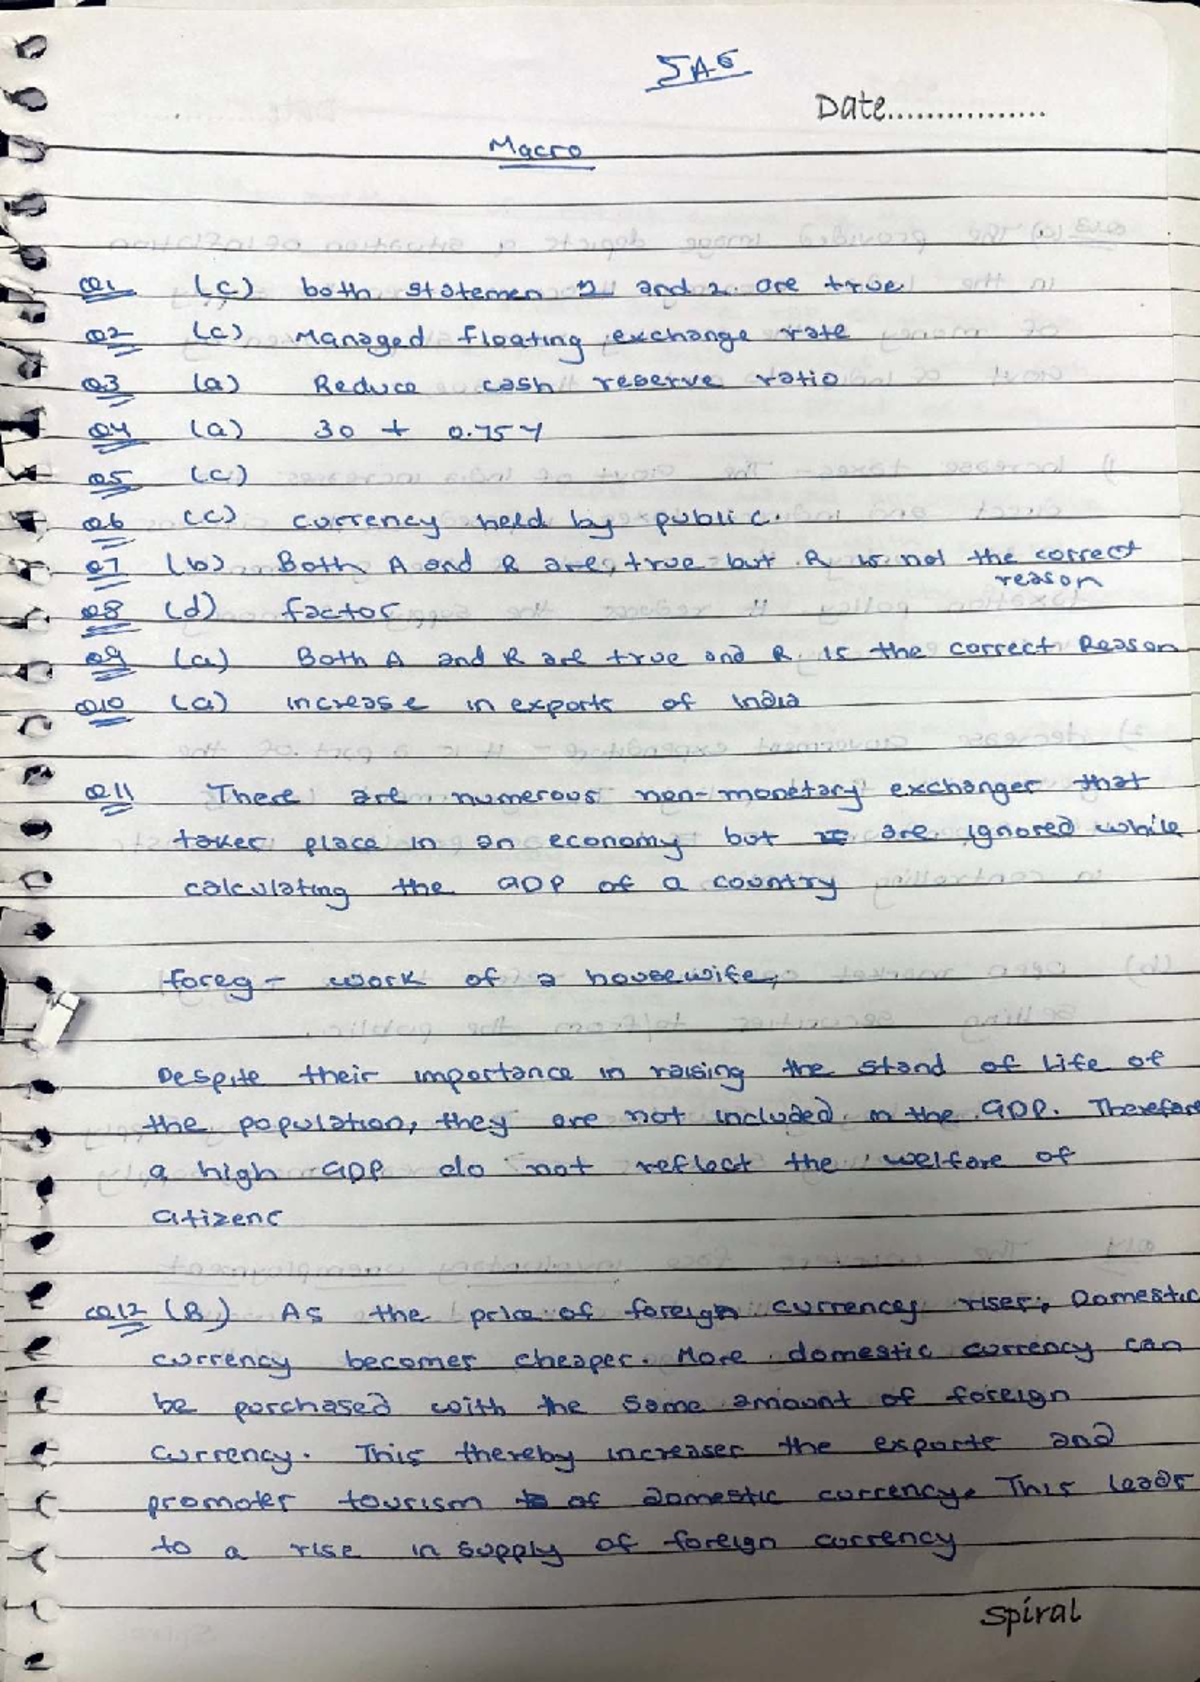 SAG
Date................
Macro
Q1 (c) both statemen 1 and 2 are true
Q2 (c) Managed floating exchange rate
Q3 (a) Reduce cash reserve ratio
Q4 (a) 30 + 0.75Y
Q5 (c)
Q6 (c) currency held by public.
Q7 (b) Both A and R are true but R is not the correct
reason
Q8 (d) factor
Q9 (a) Both A and R are true and R is the correct Reason
Q10 (a) increase in exports of India
Q11 There are numerous non-monetary exchanges that
takes place in an economy but are ignored while
calculating the GDP of a country
foreg - work of a housewife,
Despite their importance in raising the stand of life of
the population, they are not included in the GDP. Therefore
a high GDP do not reflect the welfare of
citizens
Q12 (B) As the price of foreign currency rises, Domestic
currency becomes cheaper. More domestic currency can
be purchased with the same amount of foreign
currency. This thereby increases the exports and
promotes tourism of domestic currency. This leads
to a rise in supply of foreign currency
Spiral